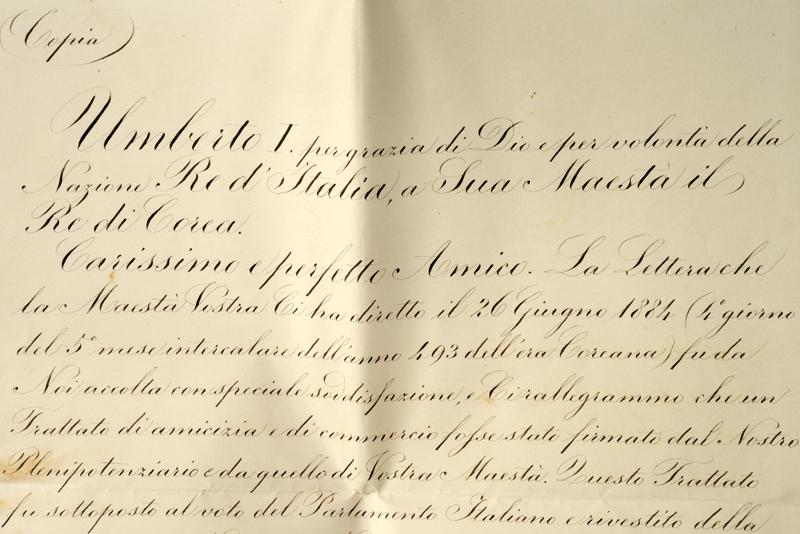 Copia
Umberto I. per grazia di Dio e per volontà della
Nazione Re d'Italia, a Sua Maestà il
Re di Corea.
Carissimo e perfetto Amico. La Lettera che
la Maestà Vostra Ci ha diretto il 26 Giugno 1884 (4° giorno
del 5° mese intercalare dell'anno 493 dell'era Coreana) fu da
Noi accolta con speciale soddisfazione, e Ci rallegrammo che un
Trattato di amicizia e di commercio fosse stato firmato dal Nostro
Plenipotenziario e da quello di Vostra Maestà. Questo Trattato
fu sottoposto al voto del Parlamento Italiano e rivestito della